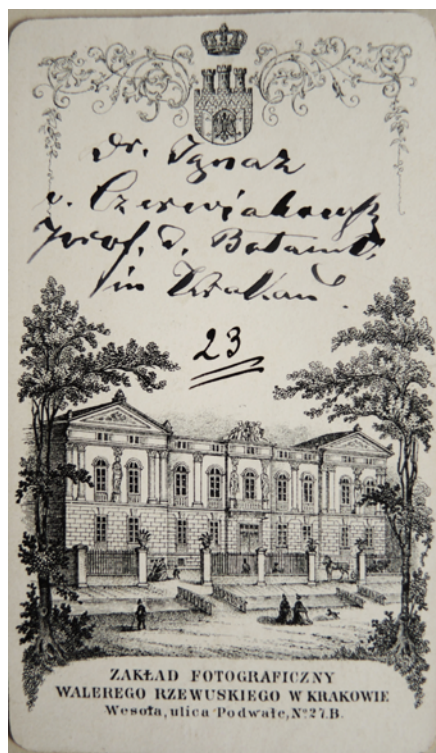 Dr. Ignaz
v. Czerwiakowsky
Prof. d. Botanik
in Krakau.
23
ZAKŁAD FOTOGRAFICZNY
WALEREGO RZEWUSKIEGO W KRAKOWIE
Wesoła, ulica Podwale, Nº 27.B.